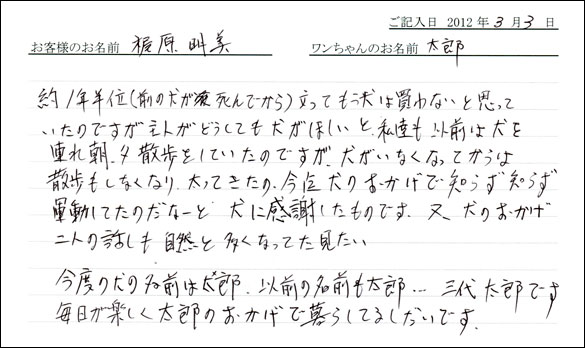 ご記入日 2012年3月3日
お客様のお名前 梶原 叫美 ワンちゃんのお名前 太郎
約1年半位(前の犬が死んでから)立ってもう犬は買わないと思って
いたのですが主人がどうしても犬がほしいと、私達も以前は犬を
連れ朝、夕散歩をしていたのですが、犬がいなくなってからは
散歩もしなくなり、太ってきたの、今迄犬のおかげで知らず知らず
運動してたのだなーと 犬に感謝したものです、又、犬のおかげ
二人の話しも自然と多くなってた見たい
今度の犬の名前は太郎、以前の名前も太郎… 三代太郎です
毎日が楽しく太郎のおかげで暮らしてるしだいです。